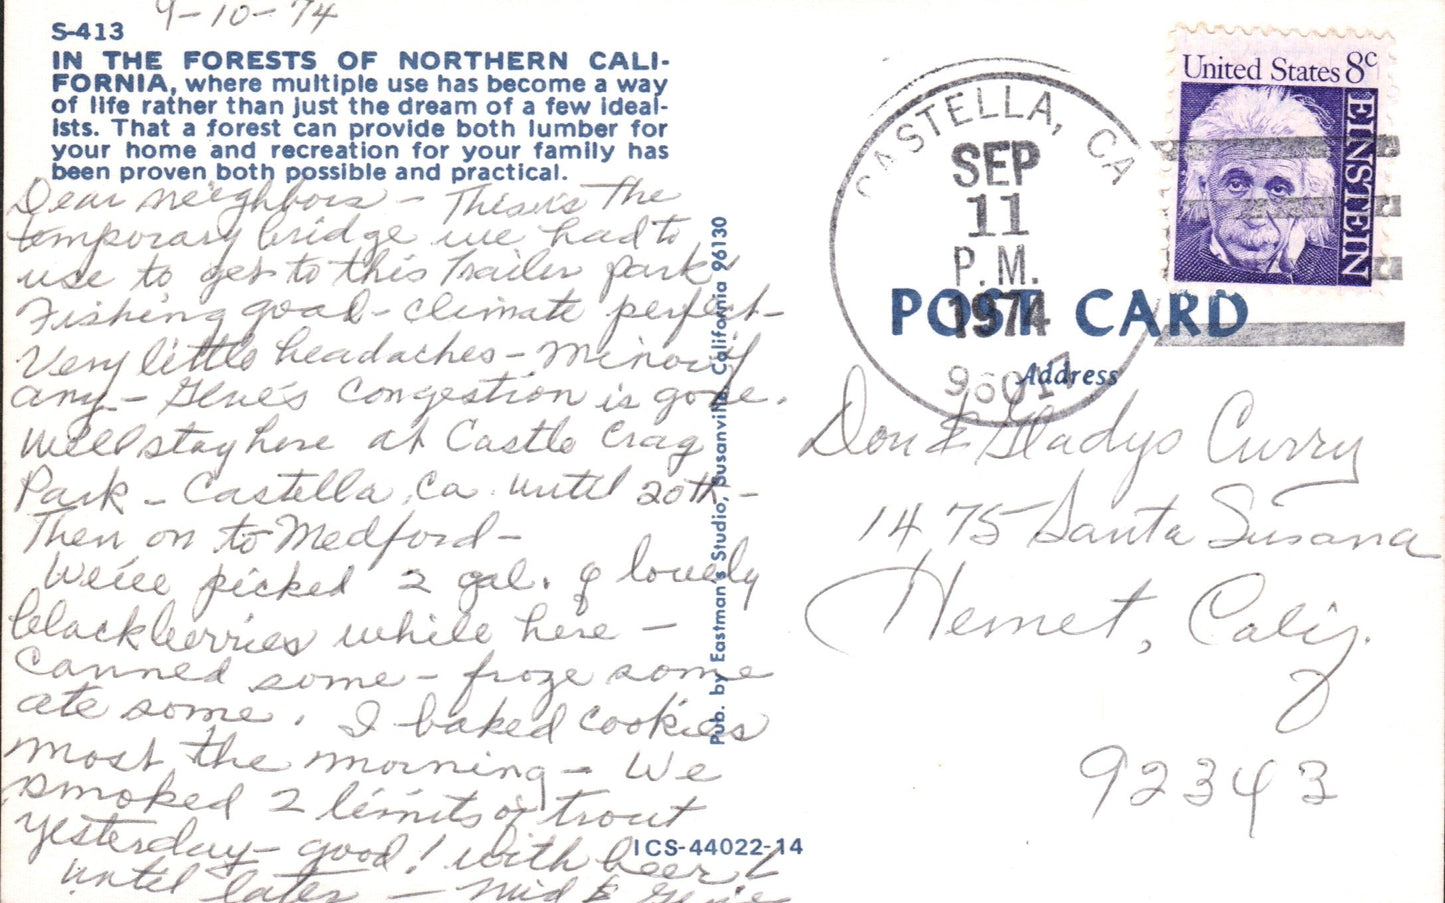 9-10-74
S-413
IN THE FORESTS OF NORTHERN CALI-
FORNIA, where multiple use has become a way
of life rather than just the dream of a few ideal-
ists. That a forest can provide both lumber for
your home and recreation for your family has
been proven both possible and practical.
Dear neighbors - This is the
temporary bridge we had to
use to get to this Trailer park
Fishing good - climate perfect -
Very little headaches - minor if
any - Gene's congestion is gone.
Will stay here at Castle Crag
Park - Castella, Ca. until 20th -
Then on to Medford -
We've picked 2 gal. of lovely
blackberries while here -
Canned some - froze some
ate some. I baked cookies
most the morning - We
smoked 2 limits of trout
yesterday - good! with beer!
until later - Mid & Gene
Pub. by Eastman's Studio, Susanville, California 96130
ICS-44022-14
CASTELLA, CA
SEP
11
P.M.
1974
96017
United States 8c
EINSTEIN
POST CARD
Address
Don & Gladys Curry
1475 Santa Susana
Hemet, Calif.
92343